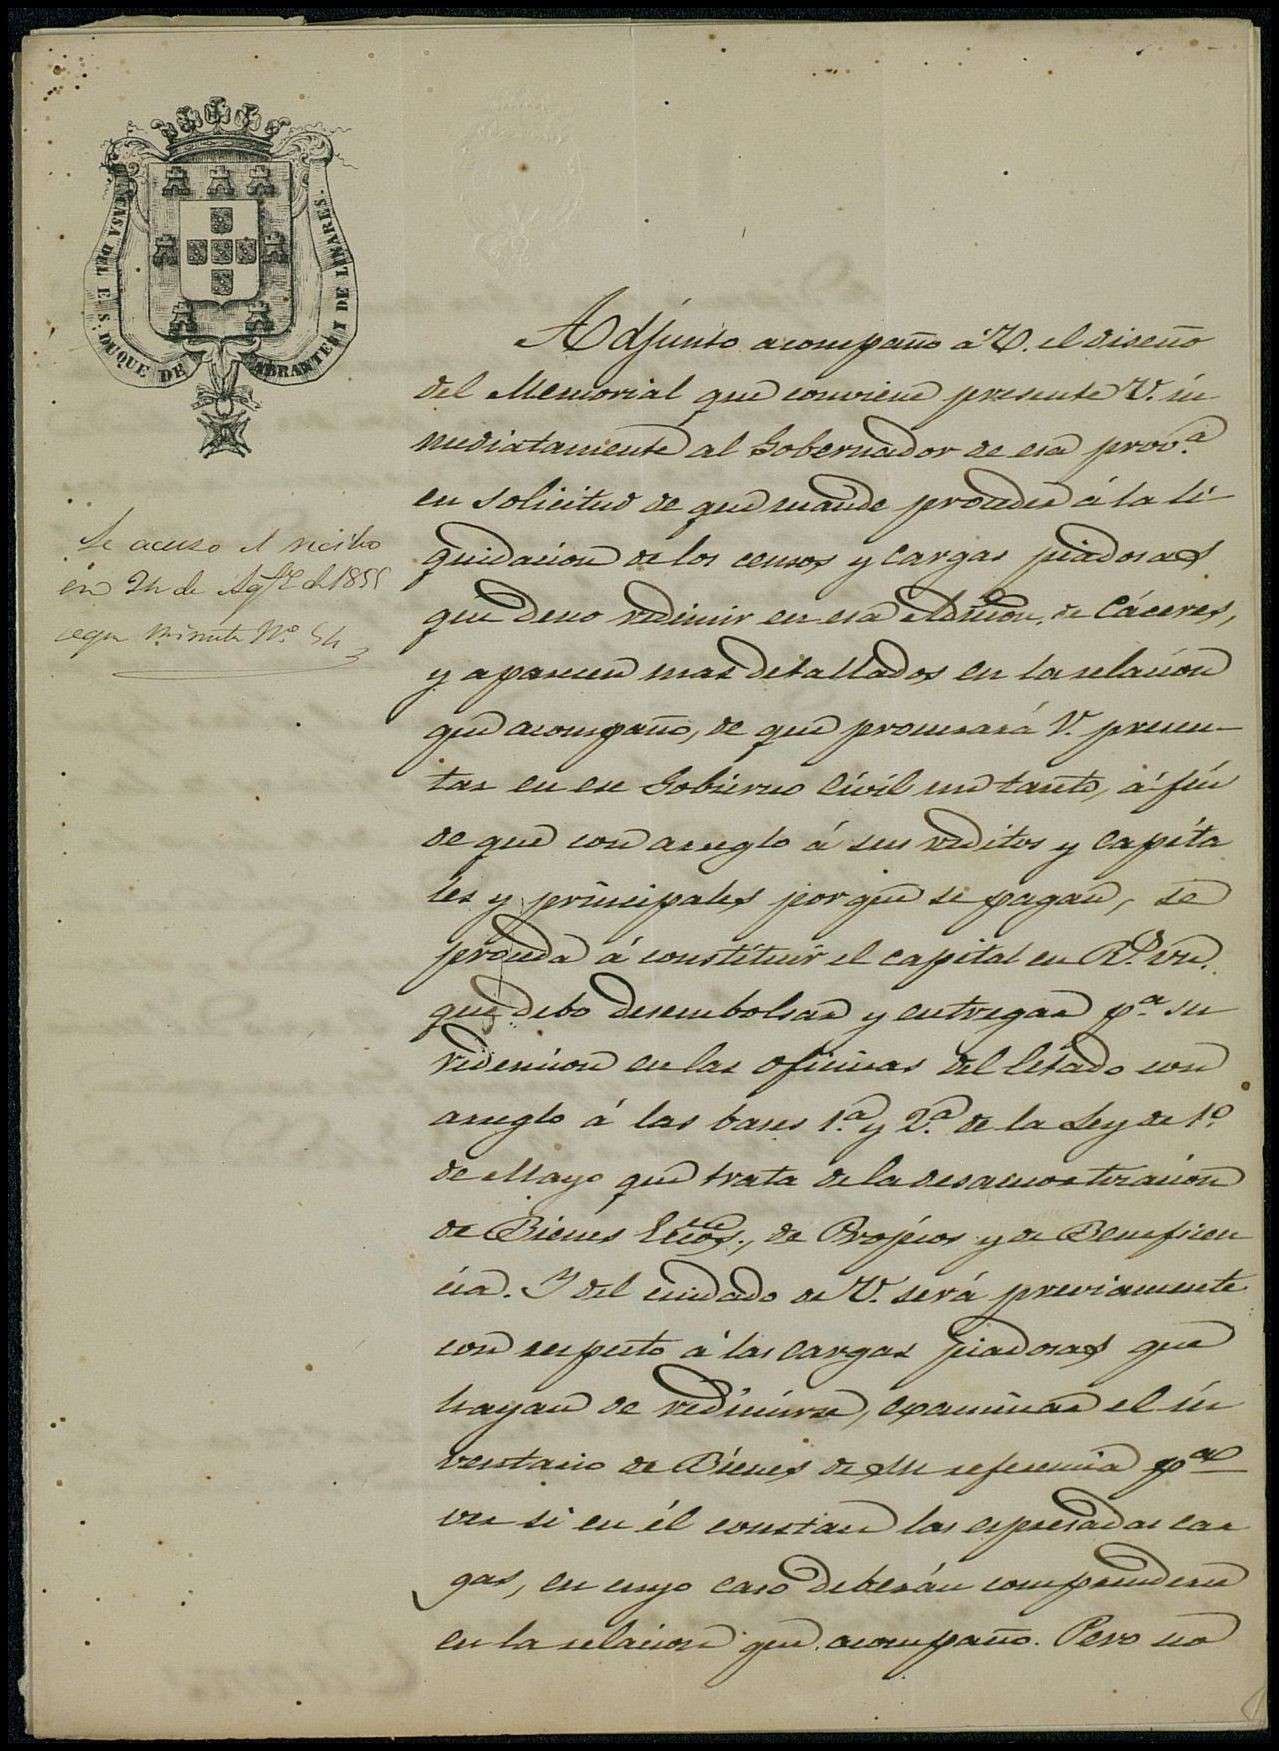 CASA DEL E. S. DUQUE DE ABRANTES I DE LINARES.
Se acusó el recibo
en 24 de Agto. de 1855
segun minuta N.º 54
Adjunto acompaño á V. el diseño
del Memorial que conviene presente V. in
mediatamente al Gobernador de esa prov.ª
en solicitud de que mande proceder á la li-
quidacion de los censos y cargas piadosas
que debo redimir en esa Admon. de Cáceres,
y aparecen mas detallados en la relacion
que acompaño, de que procurará V. presen-
tar en ese Gobierno Civil un tanto, á fin
de que con arreglo á sus reditos y capita
les y principales porque se pagan, se
proceda á constituir el capital en R.s vn.
que debo desembolsar y entregar p.ª su
redencion en las oficinas del Estado con
arreglo á las bases 1.ª y 2.ª de la Ley de 1.º
de Mayo que trata de la desamortizacion
de Bienes Eccos., de Propios y de Beneficen
cia. Y del cuidado de V. será previamente
con respecto á las cargas piadosas que
hayan de redimirse, examinar el in
ventario de Bienes de su referencia p.ª
ver si en él constan las espresadas car
gas, en cuyo caso deberán comprenderse
en la relacion que acompaño. Pero no